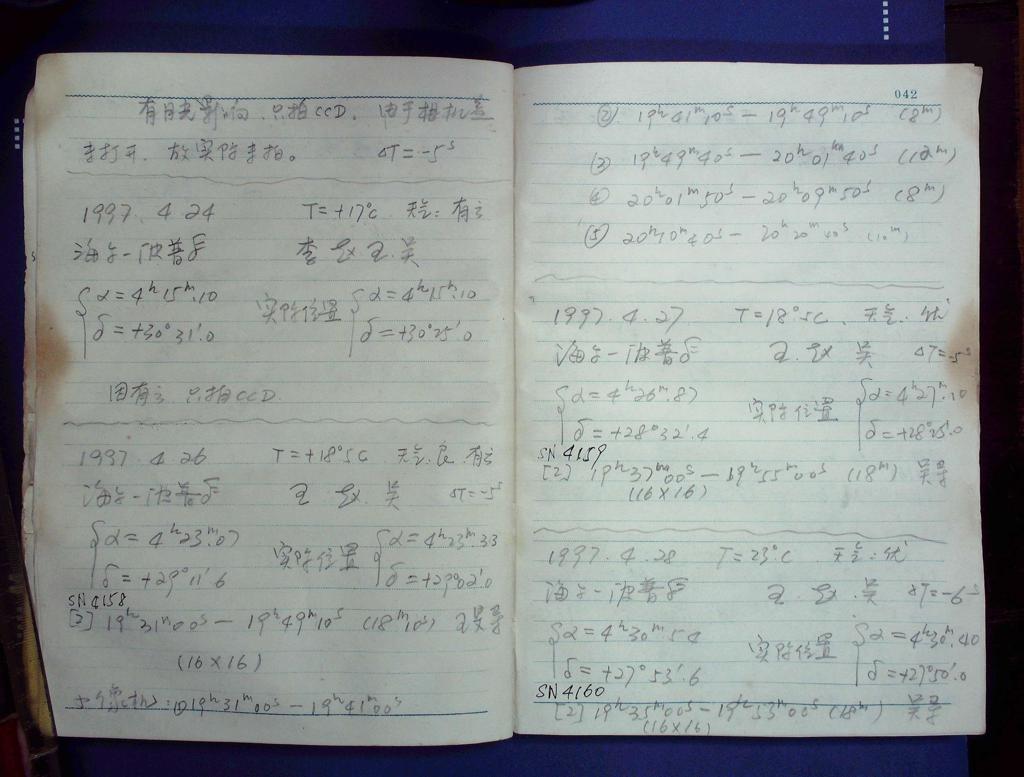 有月光影响,只拍CCD。由于相机盖
未打开,故实际未拍。 ΔT=-5ˢ
1997. 4. 24 T=+17°C 天气:有云
海尔-波普彗 李 赵 王 吴
α=4ʰ15ᵐ.10 实际位置 α=4ʰ15ᵐ.10
δ=+30°31′.0 δ=+30°25′.0
因有云,只拍CCD.
1997. 4. 26 T=+18°.5C 天气.良.有云
海尔-波普彗 王 赵.吴 ΔT=-5ˢ
α=4ʰ23ᵐ.07 实际位置 α=4ʰ23ᵐ.33
δ=+29°11′.6 δ=+29°02′.0
SN4158
[2] 19ʰ31ᵐ00ˢ - 19ʰ49ᵐ10ˢ (18ᵐ10ˢ)
(16×16)
①19ʰ31ᵐ00ˢ - 19ʰ41ᵐ00ˢ
042
② 19ʰ41ᵐ10ˢ - 19ʰ49ᵐ10ˢ (8ᵐ)
③ 19ʰ49ᵐ40ˢ - 20ʰ01ᵐ40ˢ (12ᵐ)
④ 20ʰ01ᵐ50ˢ - 20ʰ09ᵐ50ˢ (8ᵐ)
⑤ 20ʰ10ᵐ40ˢ - 20ʰ20ᵐ40ˢ (10ᵐ)
1997. 4. 27 T=18°.5C. 天气.优
海尔-波普彗 王.赵 吴 ΔT=-5ˢ
α=4ʰ26ᵐ.87 实际位置 α=4ʰ27ᵐ.10
δ=+28°32′.4 δ=+28°25′.0
SN4159
[2] 19ʰ37ᵐ00ˢ - 19ʰ55ᵐ00ˢ (18ᵐ)
(16×16)
1997. 4. 28 T=23°C 天气:优
海尔-波普彗 王.赵.吴 ΔT=-6ˢ
α=4ʰ30ᵐ.54 实际位置 α=4ʰ30ᵐ.40
δ=+27°53′.6 δ=+27°50′.0
SN4160
[2] 19ʰ35ᵐ00ˢ - 19ʰ53ᵐ00ˢ (18ᵐ)
(16×16)